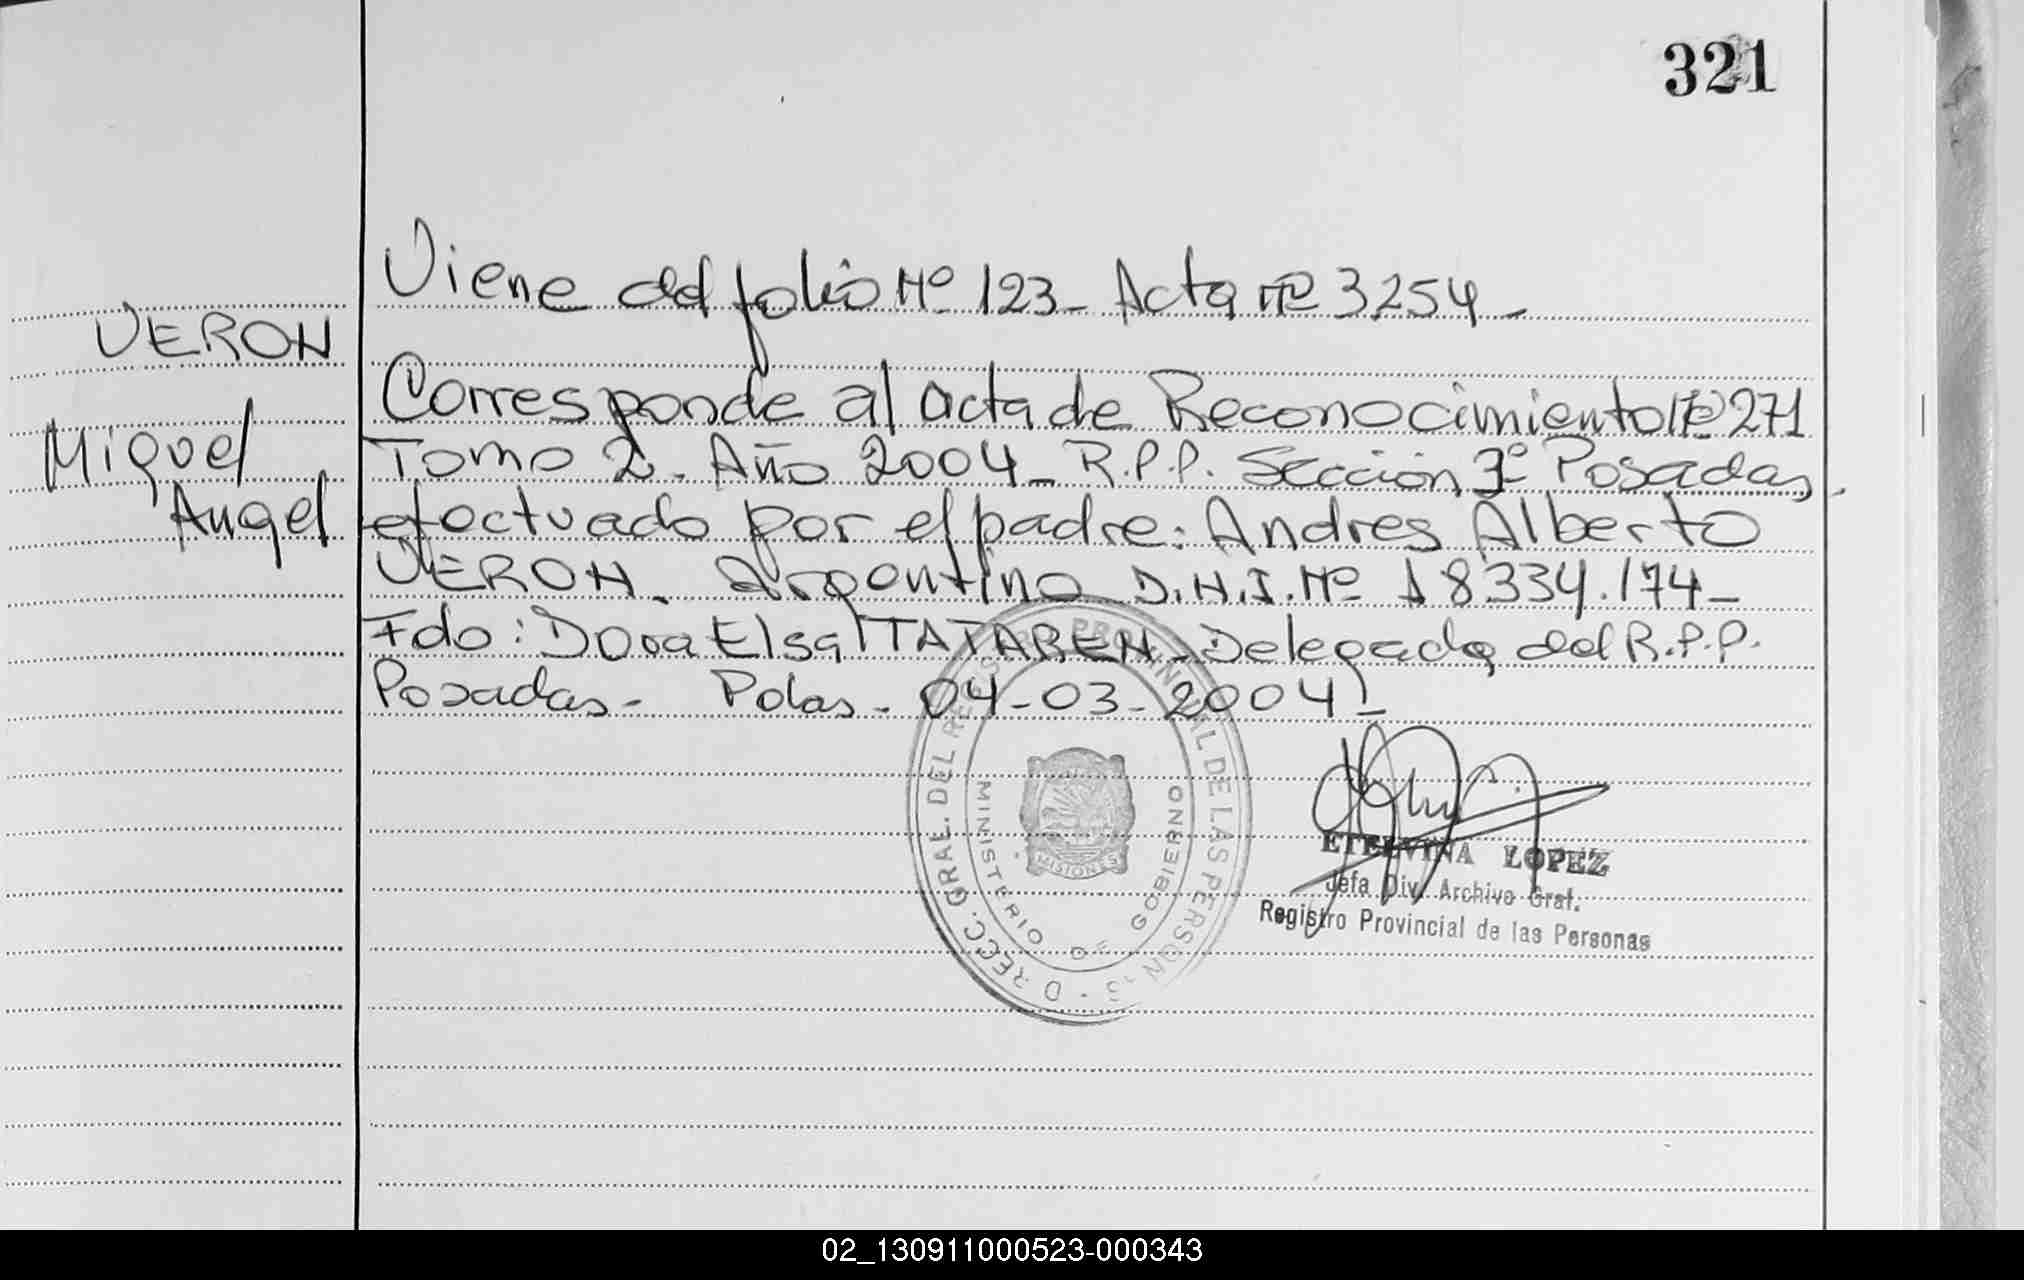 321
Viene del folio Nº 123- Acta Nº 3254-
VERON
Miguel
Angel
Corresponde al acta de Reconocimiento Nº 271
Tomo 2- Año 2004- R.P.P. Sección Posadas,
efectuado por el padre: Andres Alberto
VERON. Argentino D.N.I. Nº 18.334.174-
Fdo: Dora Elsa Delegada del R.P.P.
Posadas- Pdas- 04-03-2004-
DIRECC. GRAL. DEL REGISTRO PROVINCIAL DE LAS PERSONAS
MINISTERIO DE GOBIERNO
MISIONES
ETELVINA LOPEZ
Jefa Div. Archivo Gral.
Registro Provincial de las Personas
02_130911000523-000343